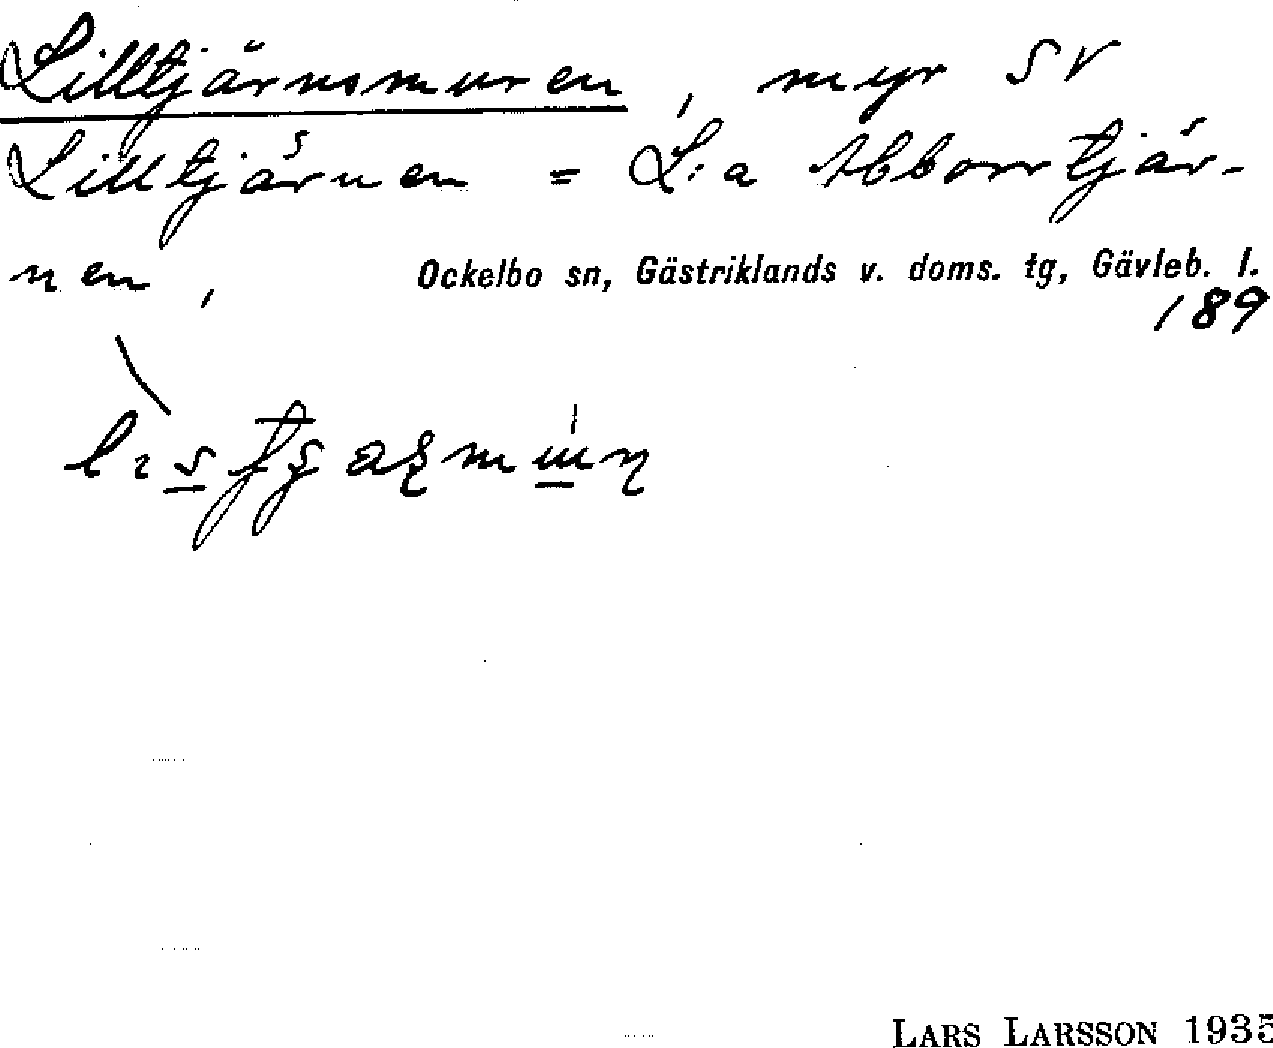 Lilltjärnsmuren, myr SV
Lilltjärnen = L:a Abborrtjär-
nen,
Ockelbo sn, Gästriklands v. doms. tg, Gävleb. l.
189
LARS LARSSON 1935